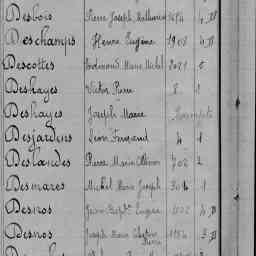 Desbois Pierre Joseph Mathurin 1694 4 D
Deschamps Henri Eugène 1908 4 D
Descottes Ferdinand Marie Michel 2021
Deshayes Victor Pierre 8 1
Deshayes Joseph Marie
Desjardens Léon Fernand 4 1
Deslandes Pierre Marie 702 2
Desmares Michel Marie Joseph 1
Desnos Jean Baptte Eugène D
Desnos Joseph Marie Pierre 3 D